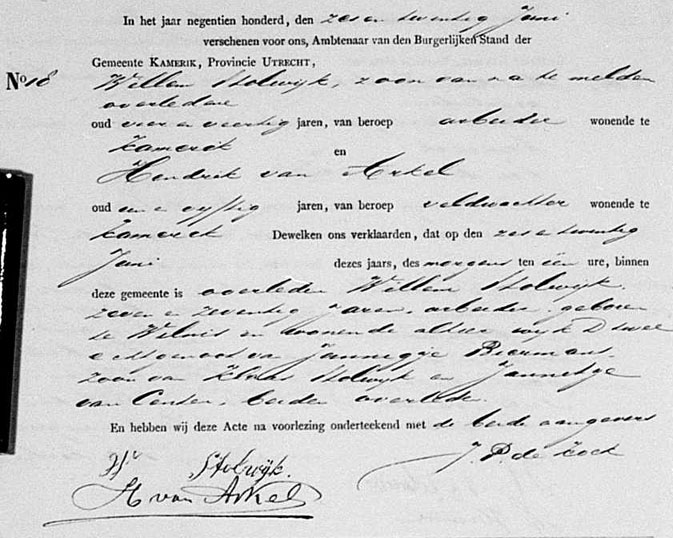 In het jaar negentien honderd, den zes en twintig Juni
verschenen voor ons, Ambtenaar van den Burgerlijken Stand der
Gemeente KAMERIK, Provincie UTRECHT,
No 18 Willem Stolwijk, zoon van na te melden
overledene
oud vier en veertig jaren, van beroep arbeider wonende te
Kamerik en
Hendrik van Arkel
oud een en vijftig jaren, van beroep veldwachter wonende te
Kamerik Dewelken ons verklaarden, dat op den zes en twintig
Juni dezes jaars, des morgens ten één ure, binnen
deze gemeente is overleden Willem Stolwijk
zeven en zeventig jaren, arbeider, geboren
te Wilnis en wonende alhier wijk D twee
echtgenoot van Jannigje Bierman,
zoon van Klaas Stolwijk en Jannetje
van beiden overleden.
En hebben wij deze Acte na voorlezing onderteekend met de beide aangevers
W Stolwijk. J. P. de Kock
H van Arkel